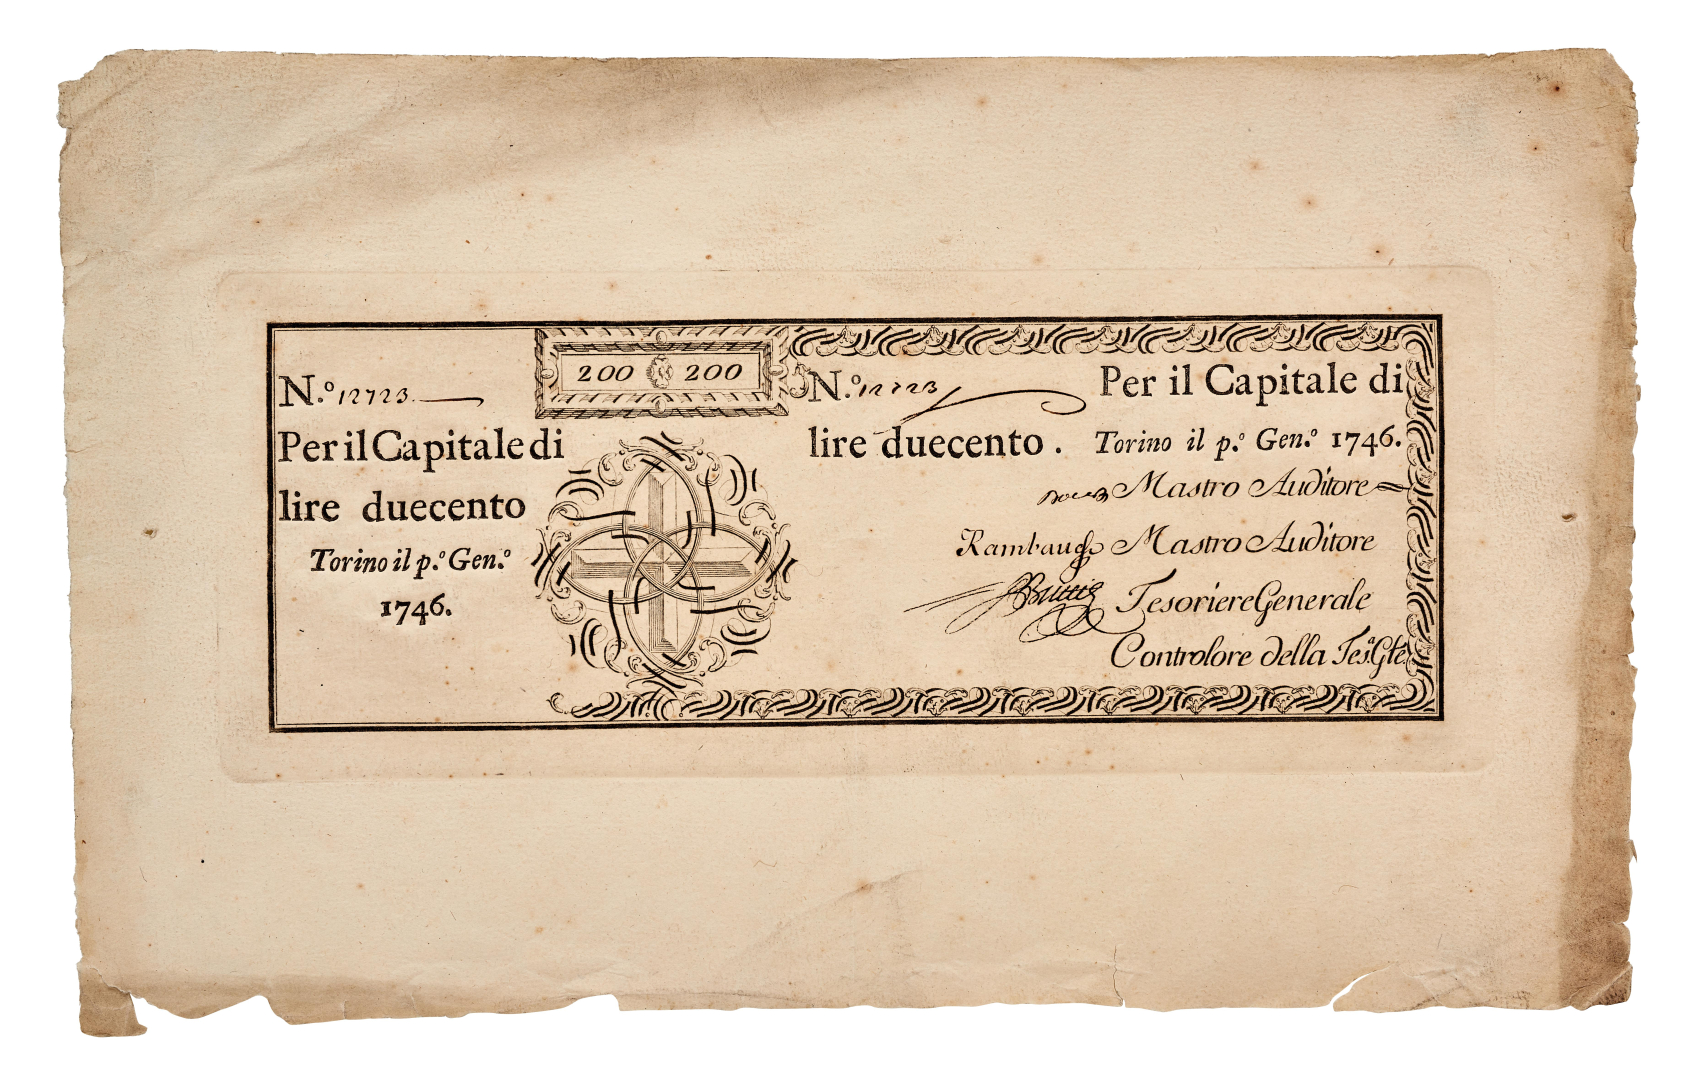 N.º 12723.
Per il Capitale di
lire duecento
Torino il p.º Gen.º
1746.
200 200
N.º 12723 Per il Capitale di
lire duecento. Torino il p.º Gen.º 1746.
Mastro Auditore
Mastro Auditore
Tesoriere Generale
Controlore della Tes.ª Gle